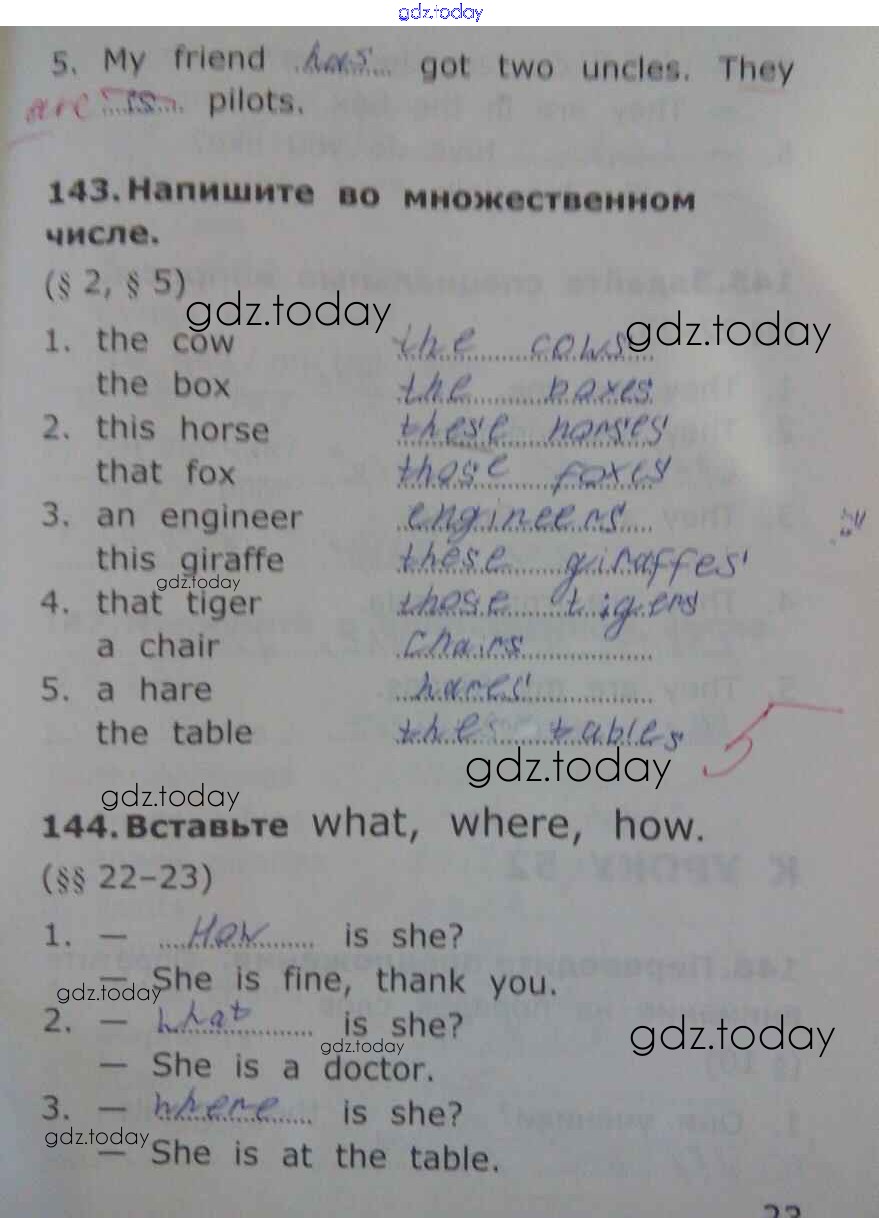 gdz.today
5. My friend has got two uncles. They
are is pilots.
143. Напишите во множественном
числе.
(§ 2, § 5)
gdz.today
gdz.today
1. the cow the cows
the box the boxes
2. this horse these horses
that fox those foxes
3. an engineer engineers
this giraffe these giraffes
gdz.today
4. that tiger those tigers
a chair chairs
5. a hare hares
the table the tables
gdz.today
gdz.today
144. Вставьте what, where, how.
(§§ 22–23)
1. — How is she?
— She is fine, thank you.
gdz.today
2. — what is she?
gdz.today
gdz.today
— She is a doctor.
3. — where is she?
gdz.today
— She is at the table.
23